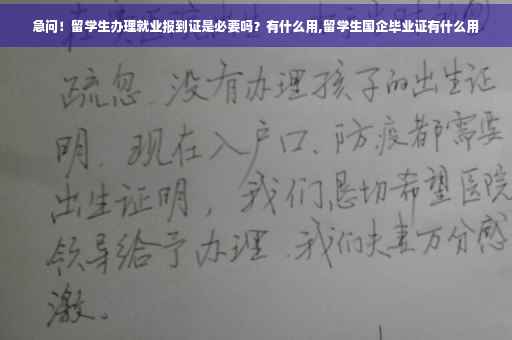 急问！留学生办理就业报到证是必要吗？有什么用,留学生国企毕业证有什么用
疏忽、没有办理孩子的出生证
明、现在入户口、防疫都需要
出生证明，我们恳切希望医院
领导给予办理、我们夫妻万分感
激。